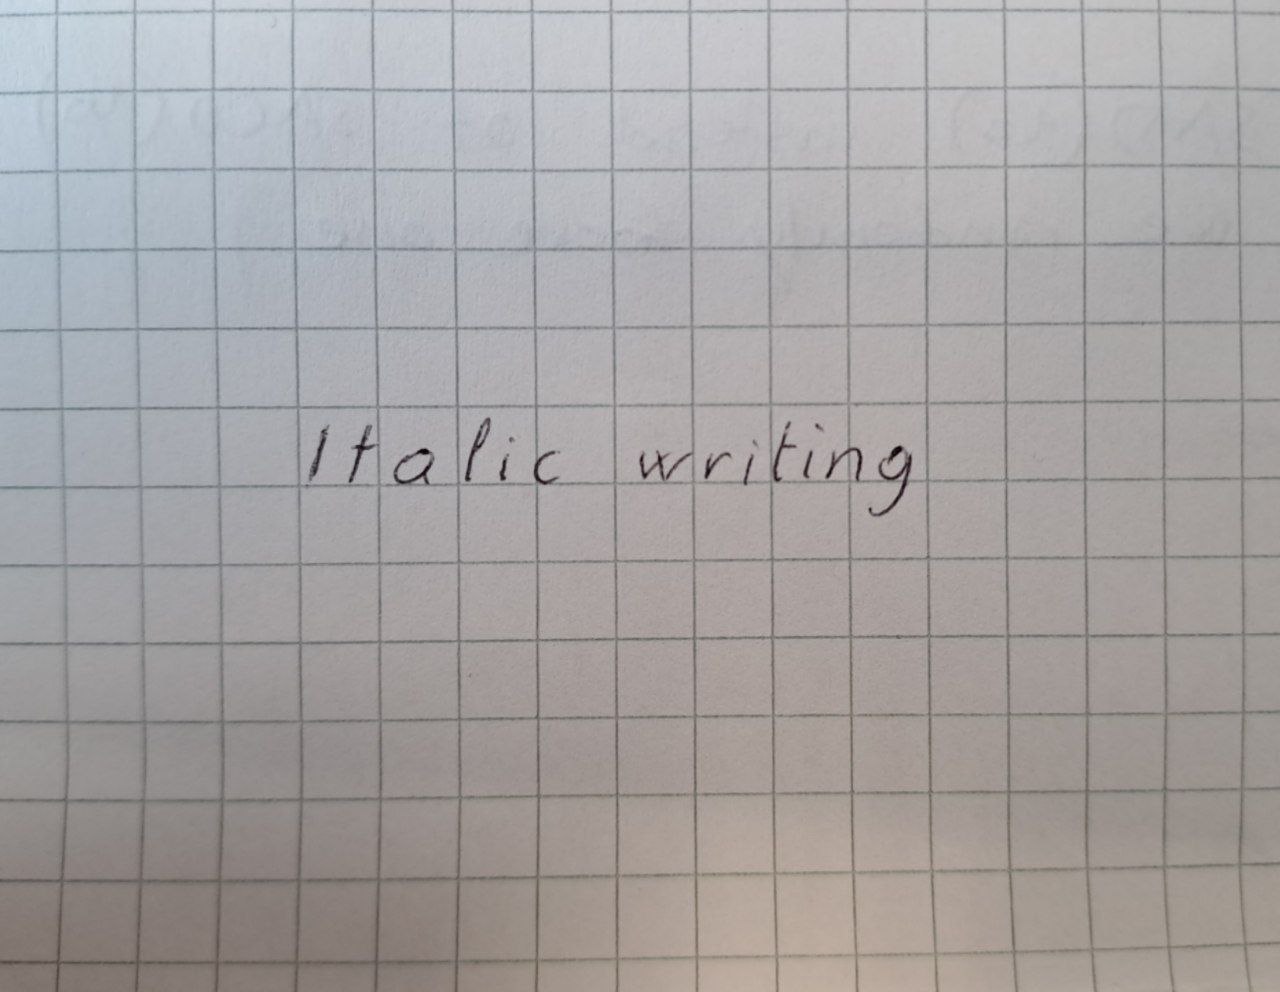 Italic writing